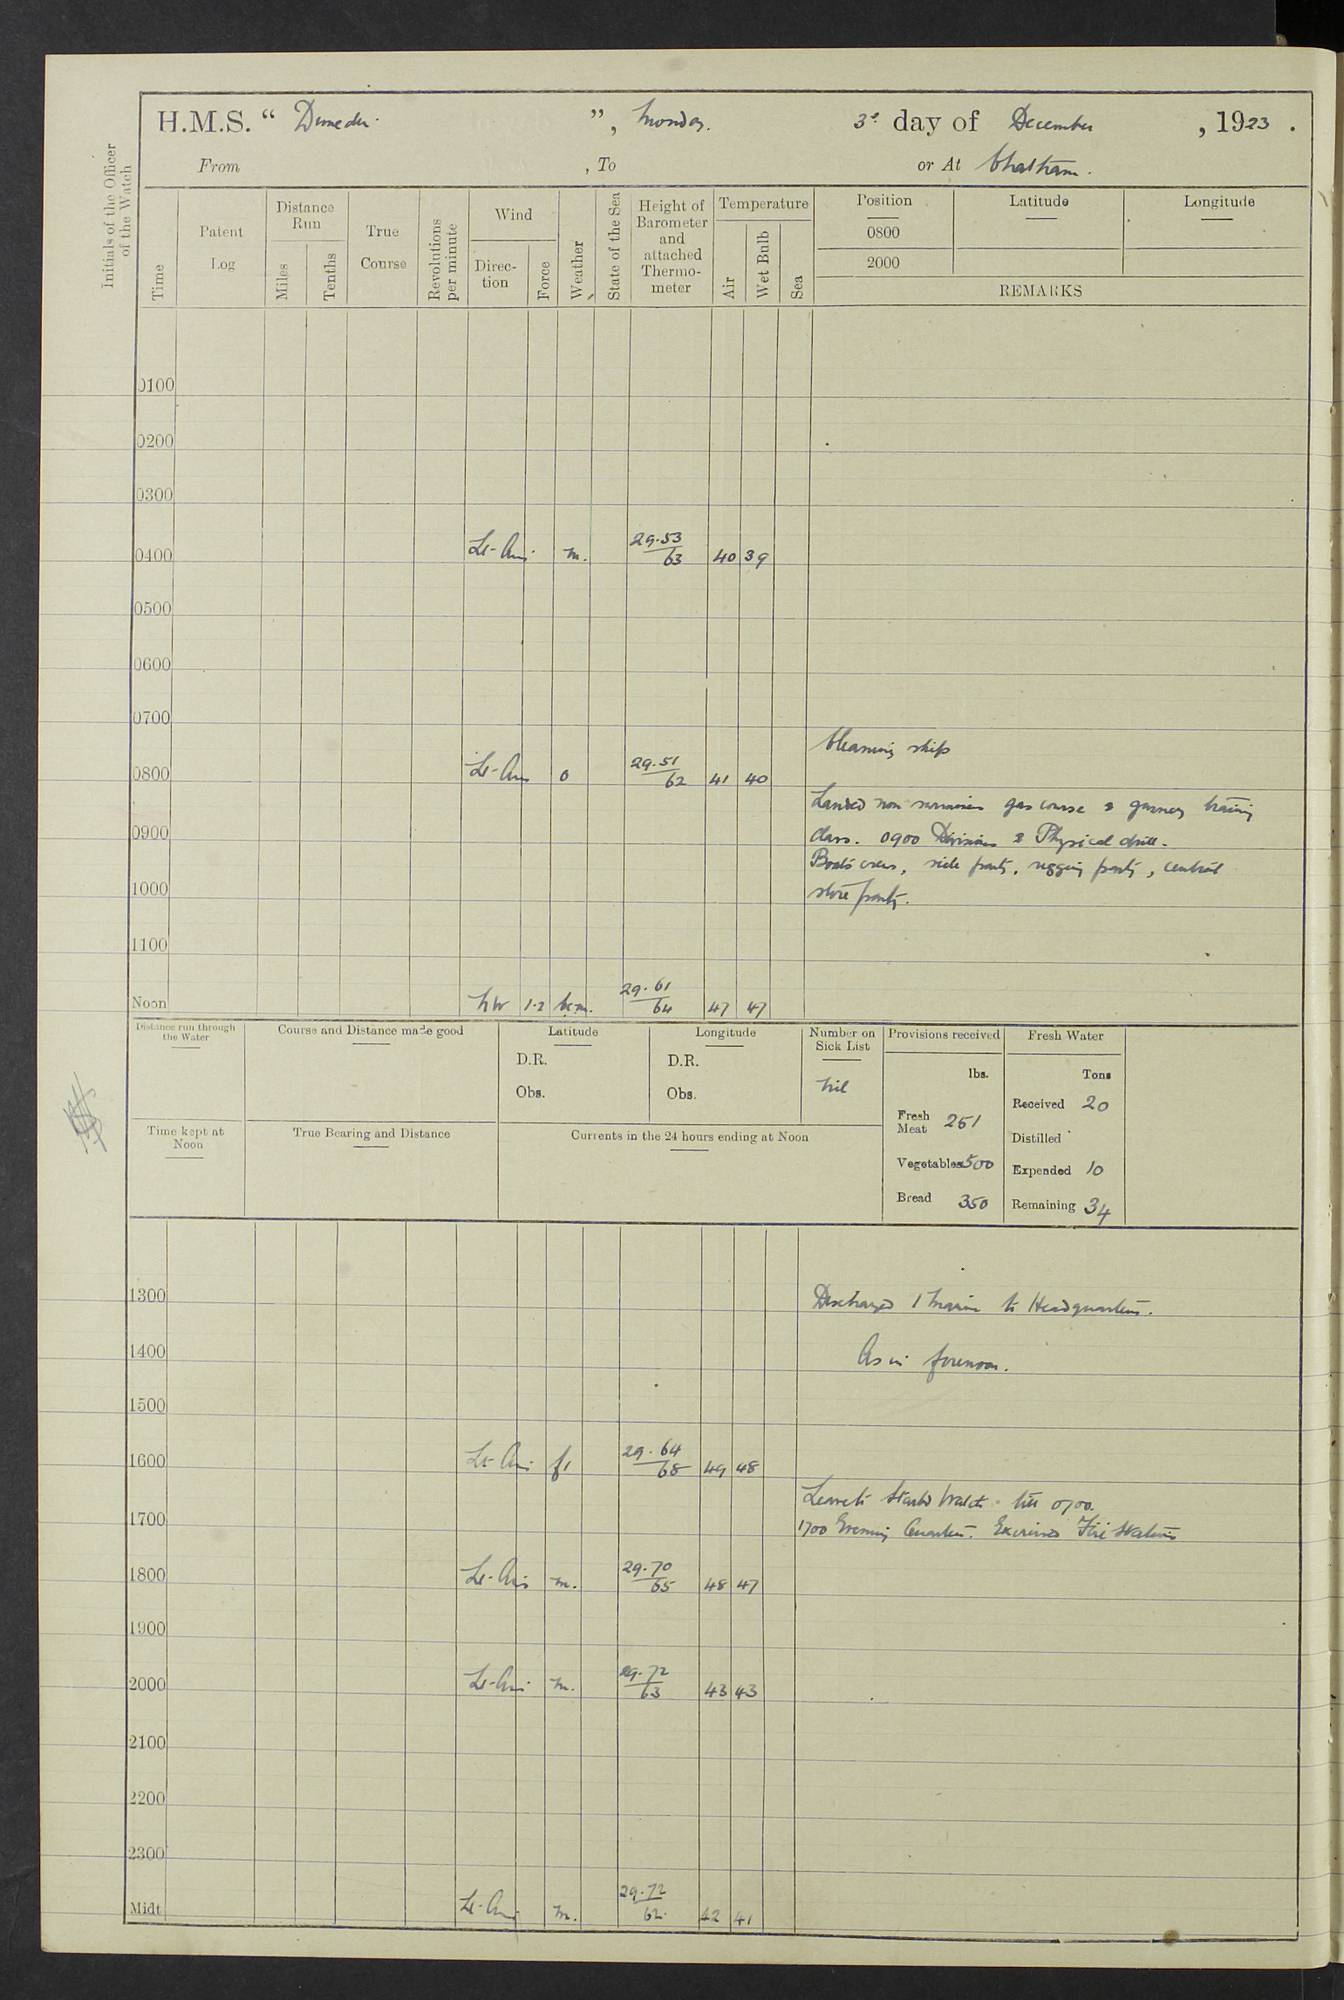 H.M.S. “ Dunedin ”, Monday. 3rd day of December, 1923.
From , To or At Chatham.
Initials of the Officer of the Watch
Time
Patent Log
Distance Run
Miles
Tenths
True Course
Revolutions per minute
Wind
Direction
Force
Weather
State of the Sea
Height of Barometer and attached Thermometer
Temperature
Air
Wet Bulb
Sea
Position Latitude Longitude
0800
2000
REMARKS
0100
0200
0300
0400 Lt-Airs m. 29.53/63 40 39
0500
0600
0700
Cleaning ship
0800 Lt-Airs o 29.51/62 41 40
Landed non swimmers gas course & gunnery training
0900 class. 0900 Divisions & Physical drill.
Boats crews, side party, rigging party, central
1000 store party.
1100
Noon NW 1-2 bcm. 29.61/64 47 47
Distance run through the Water
Course and Distance made good
Latitude
D.R.
Obs.
Longitude
D.R.
Obs.
Number on Sick List
Nil
Provisions received
lbs.
Fresh Meat 251
Vegetables 500
Bread 350
Fresh Water
Tons
Received 20
Distilled
Expended 10
Remaining 34
Time kept at Noon
True Bearing and Distance
Currents in the 24 hours ending at Noon
1300 Discharged 1 Marine to Headquarters.
1400 As in forenoon.
1500
1600 Lt-Airs f 29.64/68 49 48
Leave to Starbd Watch till 0700.
1700 1700 Evening Quarters. Exercised Fire Stations
1800 Lt-Airs m. 29.70/65 48 47
1900
2000 Lt-Airs m. 29.72/63 43 43
2100
2200
2300
Midt. Lt-Airs m. 29.72/62 42 41